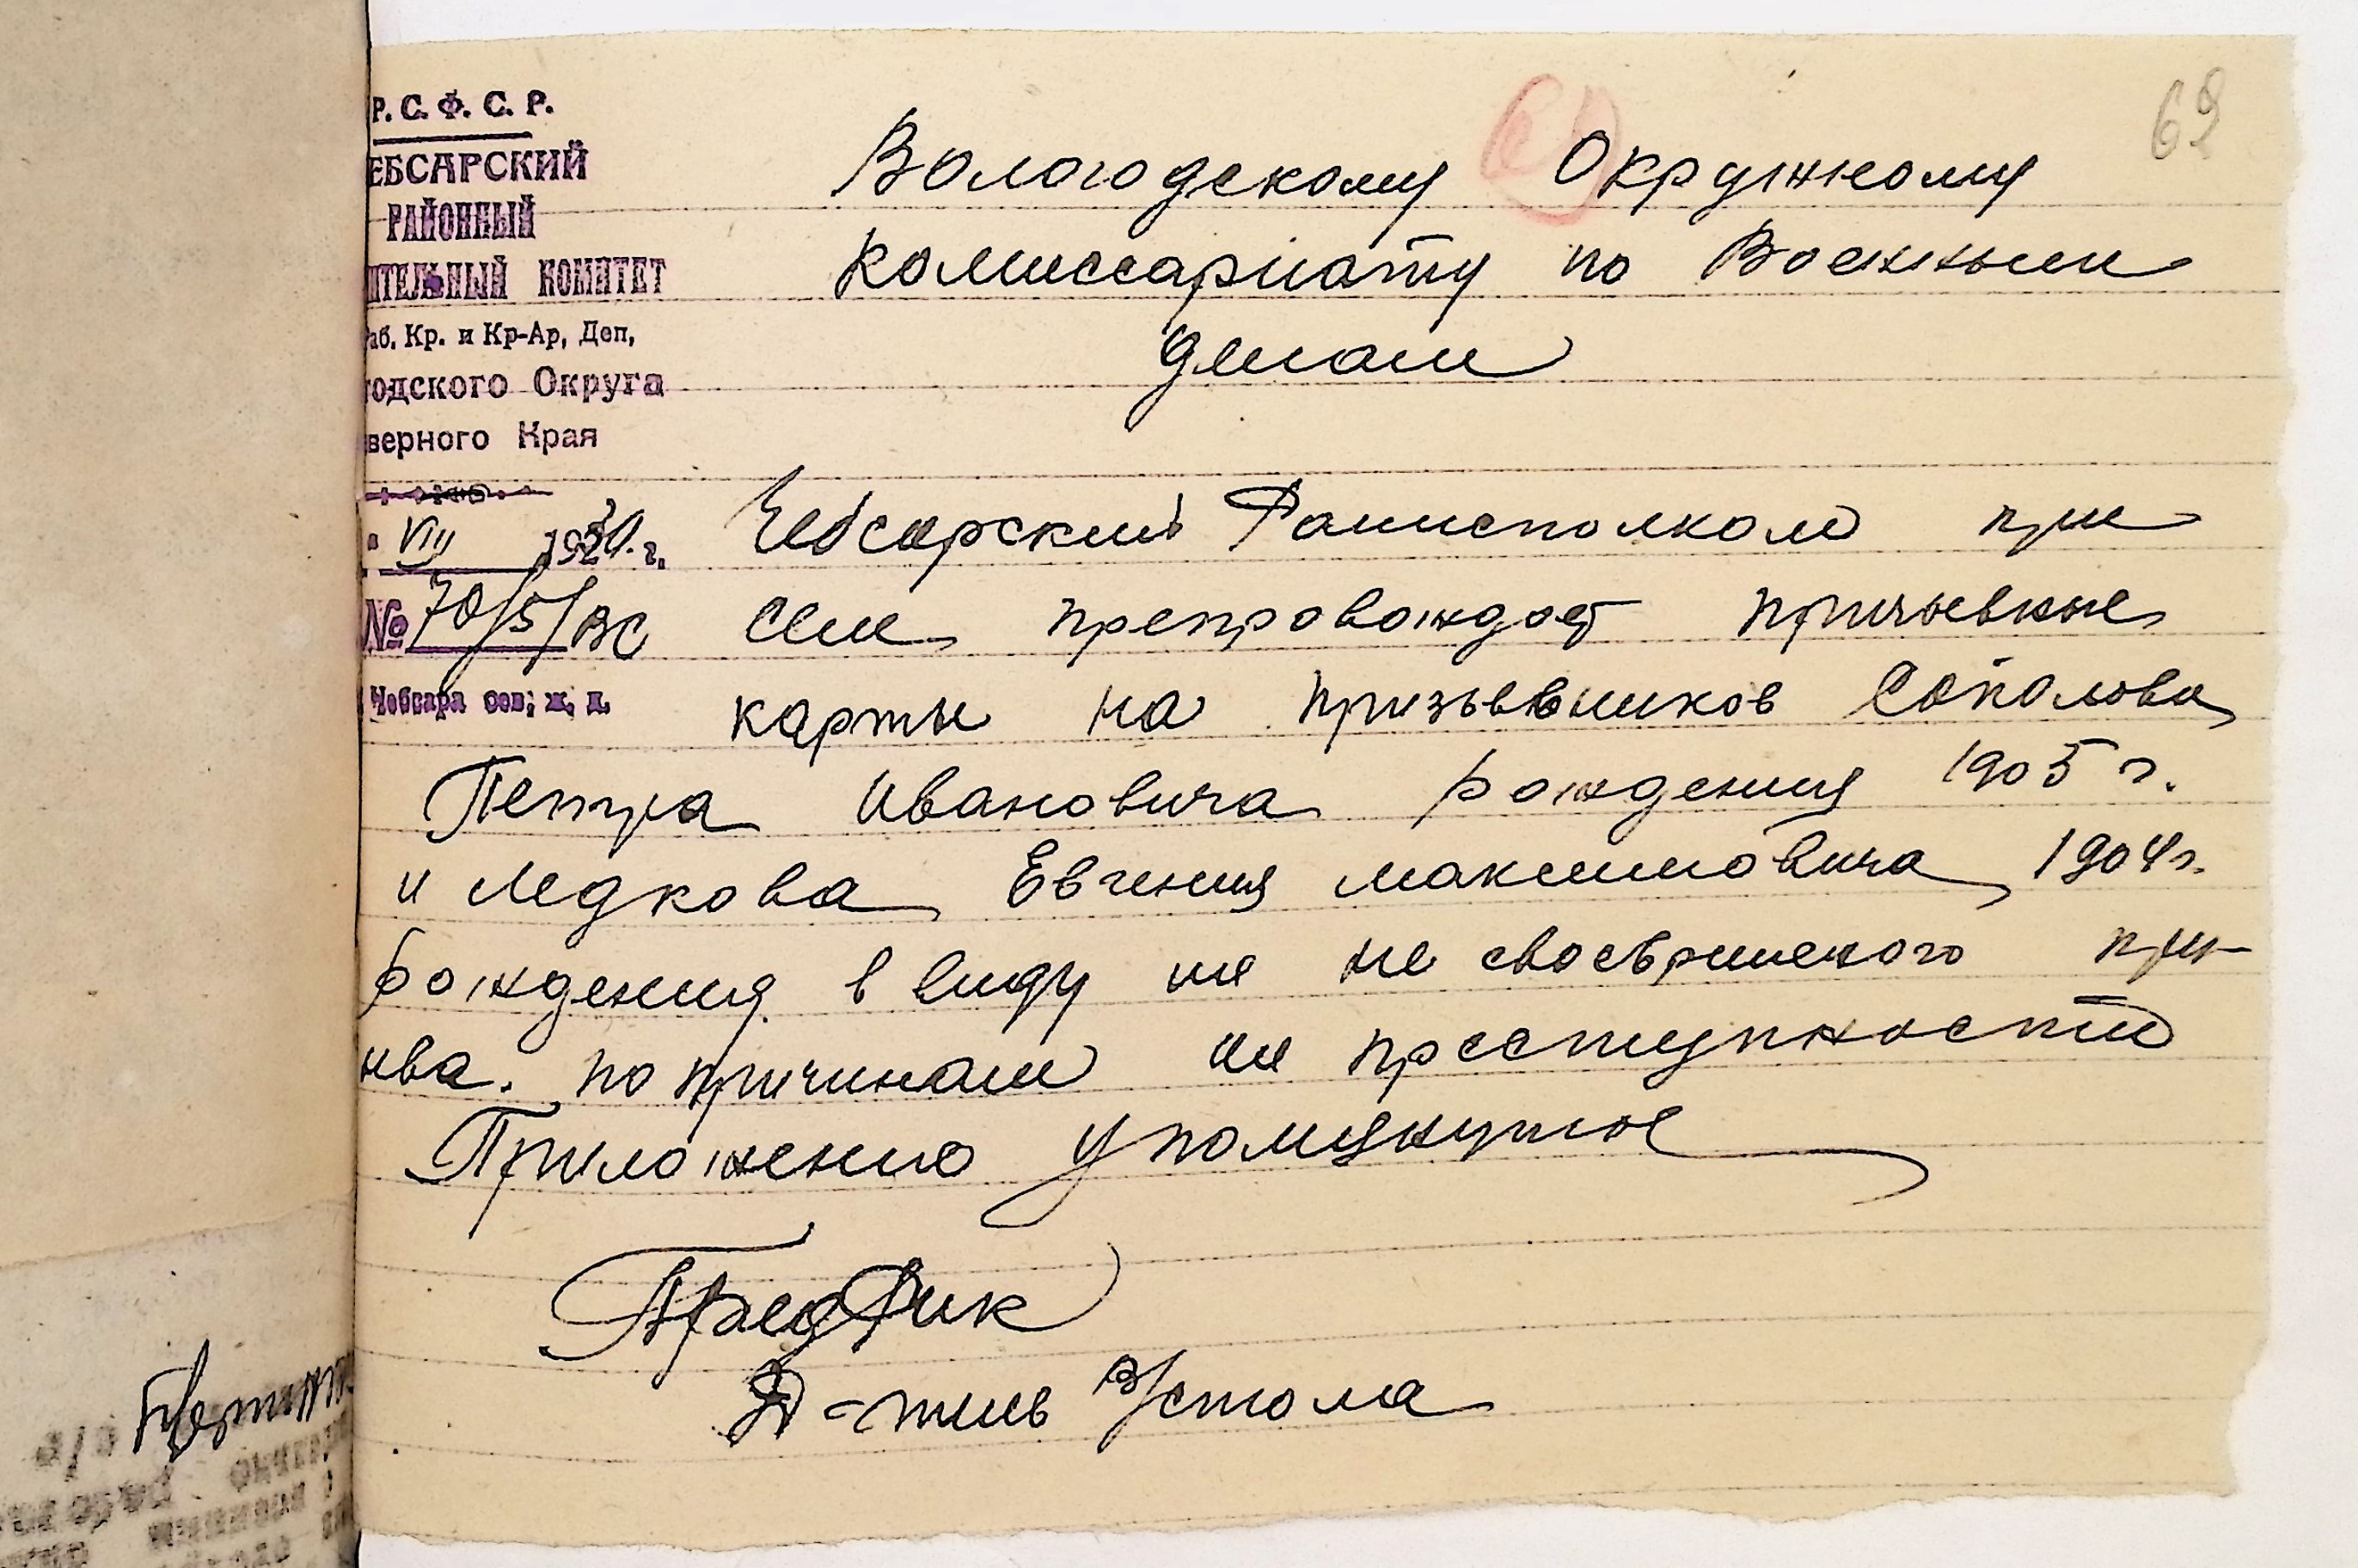 69
Р. С. Ф. С. Р.
ЕБСАРСКИЙ
РАЙОННЫЙ
ИТЕЛЬНЫЙ КОМИТЕТ
аб. Кр. и Кр-Ар, Деп,
годского Округа
верного Края
VIII 1930 г.
№ 70/5/ВС
Чебсара сев; ж, д.
Вологодскому Окружному
комиссариату по Военным
делам
Чебсарский Райисполком при
сем препровождает призывные
карты на призывников Соколова
Петра Ивановича рождения 1905 г.
и Ледкова Евгения Максимовича 1904 г.
рождения в виду их не своевременного при-
ыва. по причинам их преступности
Приложению упомянутое
ПредРик
Д-тив В/стола